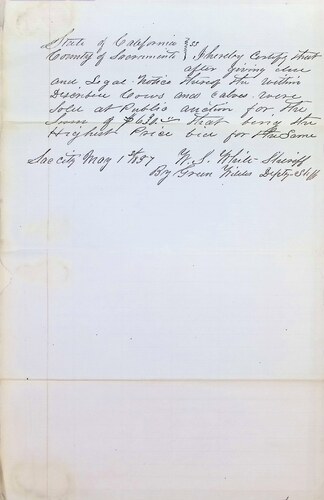 State of California } ss
County of Sacramento } I hereby Certify that
after giving due
and Legal Notice thereof the within
Describe Cows and Calves were
Sold at Public auction for the
Sum of that being the
Highest Price bid for the Same
Sac city May 1st W. S. White Sheriff
By Green Depty Shff